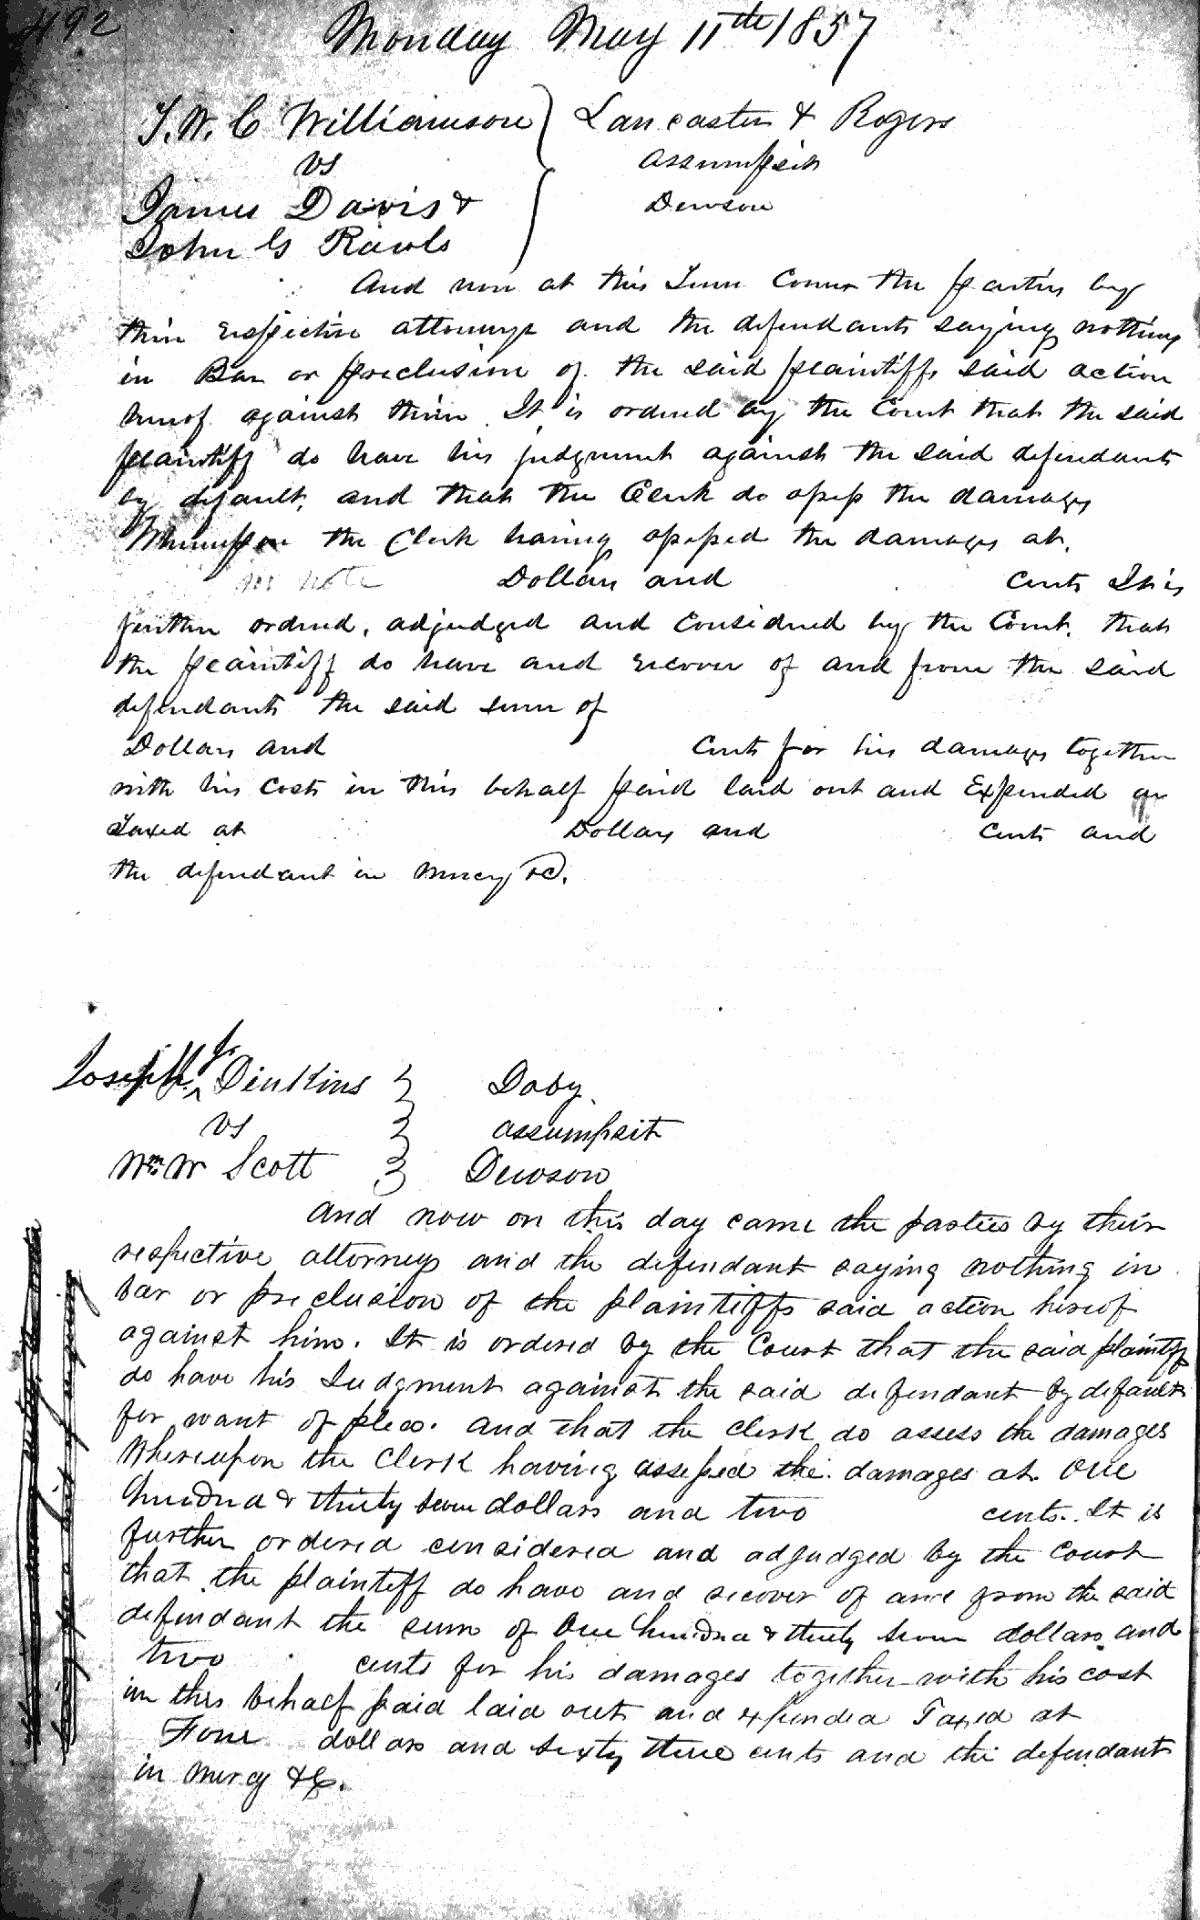 492
Monday May 11th 1857
T. W. C Williamson } Lancaster & Rogers
vs assumpsit
James Davis & } Dewson
John G Rawls
And now at this Term Comes the parties by
their respective attorneys and the defendants saying nothing
in Bar or preclusion of the said plaintiffs said action
hereof against them. It is ordered by the Court that the said
plaintiff do have his judgment against the said defendants
by default, and that the Clerk do assess the damages
Whereupon the Clerk having assessed the damages at.
no note Dollars and Cents It is
further ordered, adjudged and Considered by the Court. that
the plaintiff do have and recover of and from the said
defendants the said sum of
Dollars and Cents for his damages together
with his Costs in this behalf paid laid out and Expended
Taxed at Dollars and Cents and
the defendant in mercy &c.
Joseph Jr. Dinkins } Doby.
vs } assumpsit
Wm W Scott } Dewson
And now on this day came the parties by their
respective attorneys and the defendant saying nothing in
bar or preclusion of the plaintiffs said action hereof
against him. It is ordered by the Court that the said plaintiff
do have his Judgment against the said defendant by default
for want of plea. and that the clerk do assess the damages
Whereupon the Clerk having assessed the damages at One
hundred & thirty seven dollars and two cents. It is
further ordered considered and adjudged by the Court
that the plaintiff do have and recover of and from the said
defendant the sum of One hundred & thirty seven dollars and
two cents for his damages together with his cost
in this behalf paid laid out and expended Taxed at
Four dollars and sixty three cents and the defendant
in mercy &c.